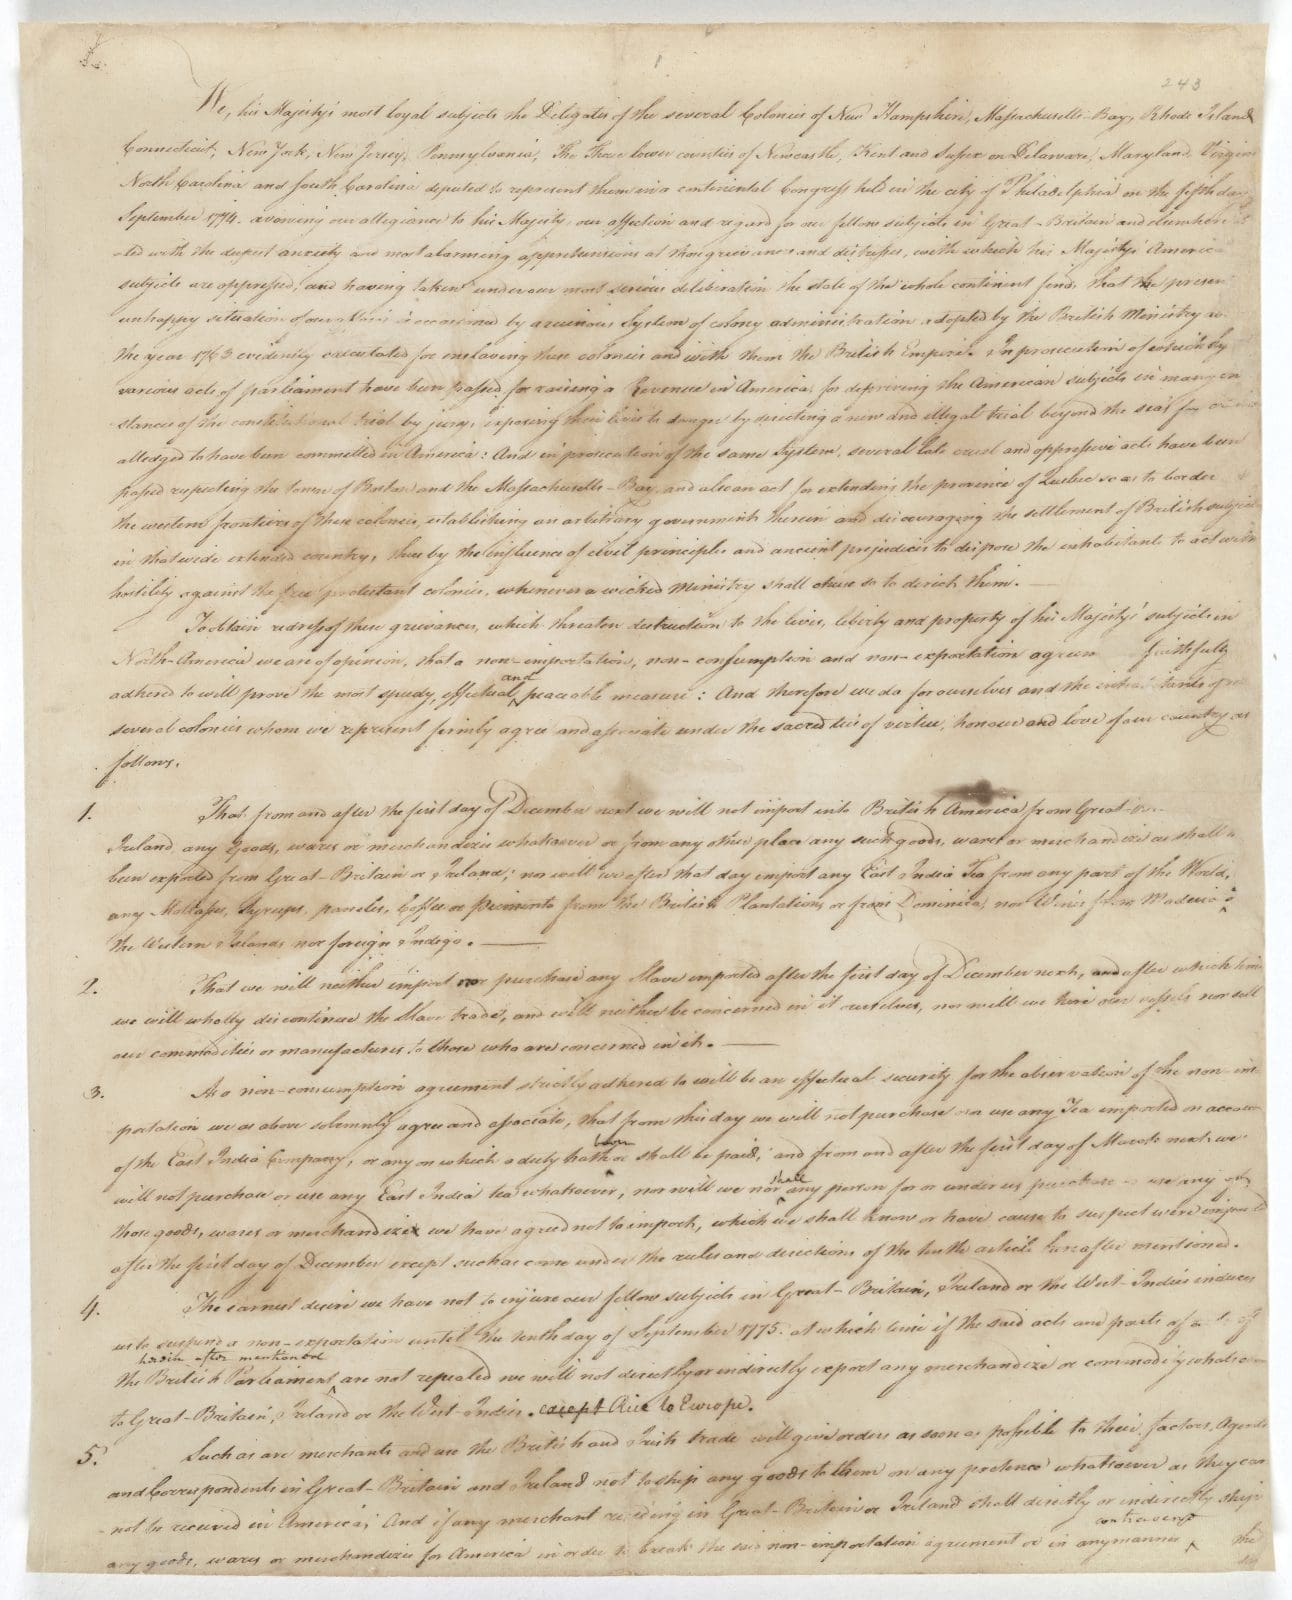 1
243
We, his Majesty's most loyal subjects the Delegates of the several Colonies of New Hampshire, Massachusetts-Bay, Rhode Island
Connecticut, New York, New Jersey, Pennsylvania, The Three lower counties of Newcastle, Kent and Sussex on Delaware, Maryland, Virginia
North Carolina and South Carolina deputed to represent them in a continental Congress held in the city of Philadelphia on the fifth day
September 1774. avowing our allegiance to his Majesty, our affection and regard for our fellow subjects in Great-Britain and elsewhere
ted with the deepest anxiety and most alarming apprehensions at those grievances and distresses, with which his Majesty's America
subjects are oppressed, and having taken under our most serious deliberation the state of the whole continent find, that the present
unhappy situation of our affairs is occasioned by a ruinous System of colony administration adopted by the British Ministry
the year 1763 evidently calculated for enslaving these colonies and with them the British Empire. In prosecution of which Sy
various acts of parliament have been passed for raising a Revenue in America, for depriving the American subjects in many in
stances of the constitutional trial by jury, exposing their lives to danger by directing a new and illegal trial beyond the seas for
alledged to have been committed in America: And in prosecution of the same System, several late cruel and oppressive acts have been
passed respecting the town of Boston and the Massachusetts-Bay, and also an act for extending the province of Quebec so as to border
the western frontiers of these colonies, establishing an arbitrary government therein and discouraging the settlement of British subjects
in that wide extended country, thus by the influence of civil principles and ancient prejudices to dispose the inhabitants to act with
hostility against the free protestant colonies, whenever a wicked Ministry shall chuse so to direct them.
To obtain redress of these grievances, which threaten destruction to the lives, liberty and property of his Majesty's subjects in
North-America we are of opinion, that a non-importation, non-consumption and non-exportation agreem faithfully
adhered to will prove the most speedy, effectual, and peaceable measure: And therefore we do for ourselves and the inhabitants of
several colonies whom we represent firmly agree and associate under the sacred ties of virtue, honour and love of our country as
follows.
1. That from and after the first day of December next we will not import into British America from Great-
Ireland any Goods, wares or merchandizes whatsoever or from any other place any such goods, wares or merchandize as shall
been exported from Great-Britain or Ireland; nor will we after that day import any East India Tea from any part of the World,
any Molasses, Syrups, paneles, Coffee or Piemento from the British Plantations or from Dominica, nor Wines from Madeira
the Western Islands nor foreign Indigo.
2. That we will neither import nor purchase any Slave imported after the first day of December next, and after which time
we will wholly discontinue the Slave trade, and will neither be concerned in it ourselves, nor will we hire our vessels nor sell
our commodities or manufactures to those who are concerned in it.
3. As a non-consumption agreement strictly adhered to will be an effectual security for the observation of the non-im
portation we as above solemnly agree and associate, that from this day we will not purchase or use any Tea imported on accou
of the East India Company, or any on which a duty hath been or shall be paid; and from and after the first day of March next we
will not purchase or use any East India tea whatsoever, nor will we nor shall any person for or under us purchase or use any of
those goods, wares or merchandize we have agreed not to import, which we shall know or have cause to suspect were imported
after the first day of December except such as come under the rules and directions of the tenth article hereafter mentioned.
4. The earnest desire we have not to injure our fellow subjects in Great-Britain, Ireland or the West-Indies induces
us to suspend a non-exportation until the tenth day of September 1775. at which time if the said acts and parts of acts of
the British Parliament herein after mentioned are not repealed we will not directly or indirectly export any merchandize or commodity whatsoever
to Great-Britain, Ireland or the West-Indies. except Rice to Europe.
5. Such as are merchants and use the British and Irish trade will give orders as soon as possible to their factors, Agents
and Correspondents in Great-Britain and Ireland not to ship any goods to them on any pretence whatsoever as they can
not be received in America; And if any merchant residing in Great-Britain or Ireland shall directly or indirectly ship
any goods, wares or merchandizes for America in order to break the said non-importation agreement or in any manner contravene the